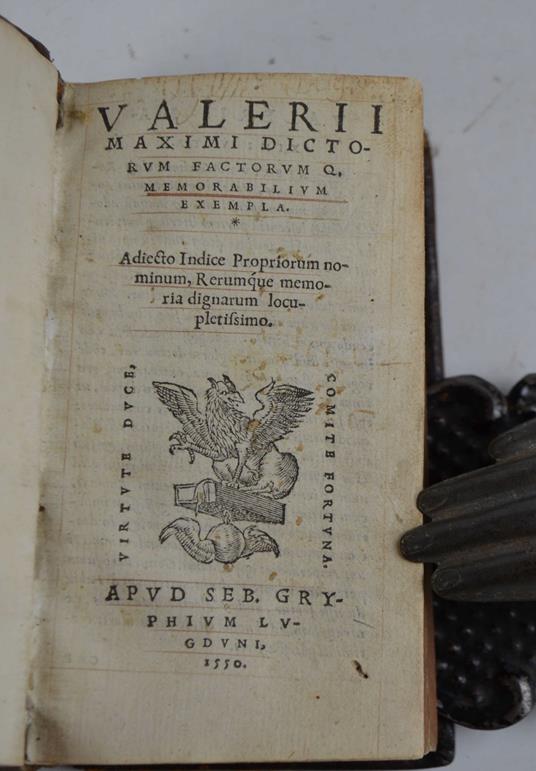 VALERII
MAXIMI DICTO-
RVM FACTORVM Q,
MEMORABILIVM
EXEMPLA.
*
Adiecto Indice Propriorum no-
minum, Rerumq́ue memo-
ria dignarum locu-
pletißimo.
VIRTVTE DVCE,
COMITE FORTVNA.
APVD SEB. GRY-
PHIVM LV-
GDVNI,
1550.